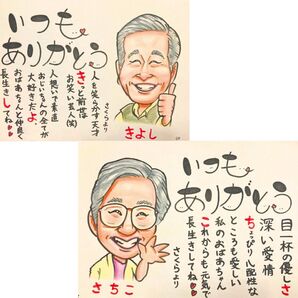 いつも
ありがとう
さくらより
人を笑らかす天才
きっと前世は
お笑い芸人(笑)
人想いで素直
おじいちゃんの全てが
大好きだよ。
おばあちゃんと仲良く
長生きしてね
きよし
いつも
ありがとう
目一杯の優しさ
深い愛情
ちょっぴり心配性な
ところも愛しい
私のおばあちゃん
これからも元気で
長生きしてね
さくらより
さちこ